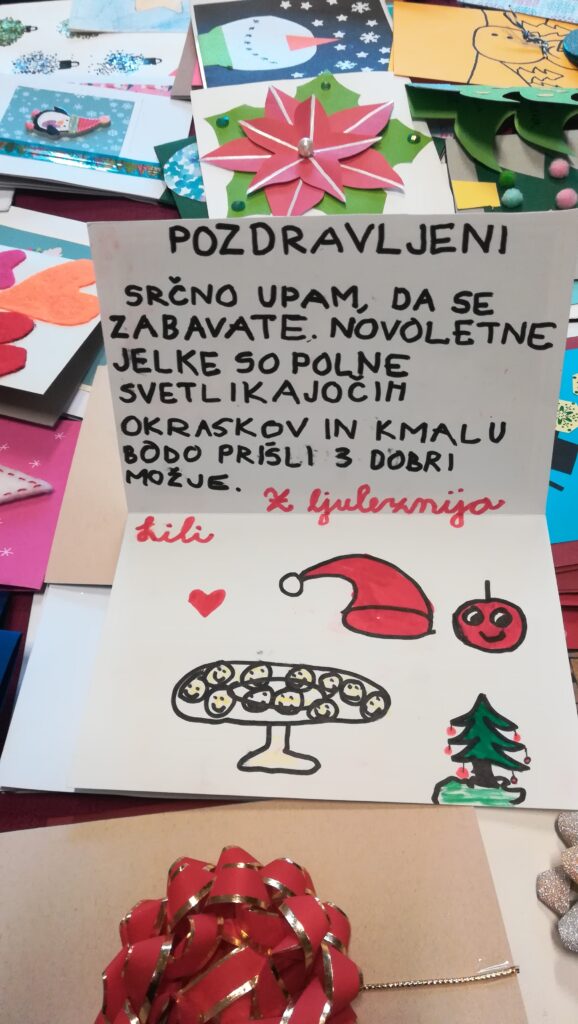 POZDRAVLJENI
SRČNO UPAM, DA SE
ZABAVATE. NOVOLETNE
JELKE SO POLNE
SVETLIKAJOČIH
OKRASKOV IN KMALU
BODO PRIŠLI 3 DOBRI
MOŽJE.
Z ljuleznija
Lili